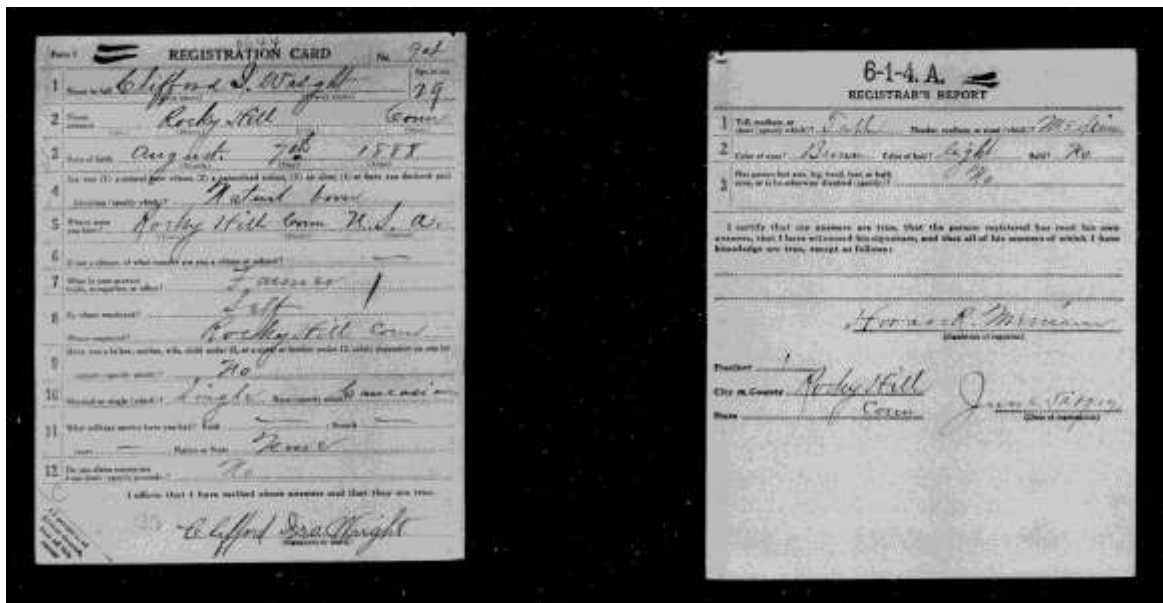 Form 1 REGISTRATION CARD No.
1 Name in full Clifford I. Wright Age, in yrs. 29
2 Home address Rocky Hill Conn
3 Date of birth August 7th 1888
4 Natural born
5 Where were you born? Rocky Hill Conn U. S. A.
6 If not a citizen, of what country are you a citizen or subject? —
7 What is your present trade, occupation, or office? Farmer
8 By whom employed? Self
Where employed? Rocky Hill Conn
9 No
10 Married or single (which)? Single Race (specify which)? Caucasian
11 What military service have you had? Rank — ; branch —
years — ; Nation or State None
12 Do you claim exemption from draft (specify grounds)? No
I affirm that I have verified above answers and that they are true.
Clifford Ira Wright
6-1-4. A.
REGISTRAR'S REPORT
1 Tall, medium, or short (specify which)? Tall Slender, medium, or stout (which)? Medium
2 Color of eyes? Brown Color of hair? Light Bald? No
3 Has person lost arm, leg, hand, foot, or both eyes, or is he otherwise disabled (specify)? No
I certify that my answers are true, that the person registered has read his own
answers, that I have witnessed his signature, and that all of his answers of which I have
knowledge are true, except as follows:
(Signature of registrar)
Precinct 1
City or County Rocky Hill
State Conn
June
(Date of registration)